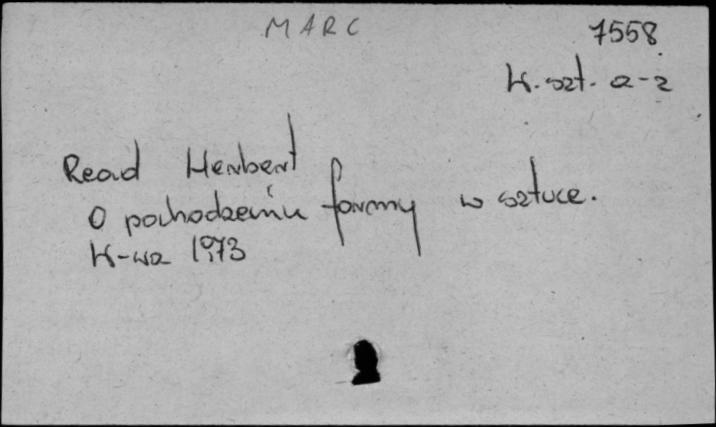 MARC
7558
W. szt. a-z
Read Herbert
O pochodzeniu formy w sztuce.
W-wa 1973